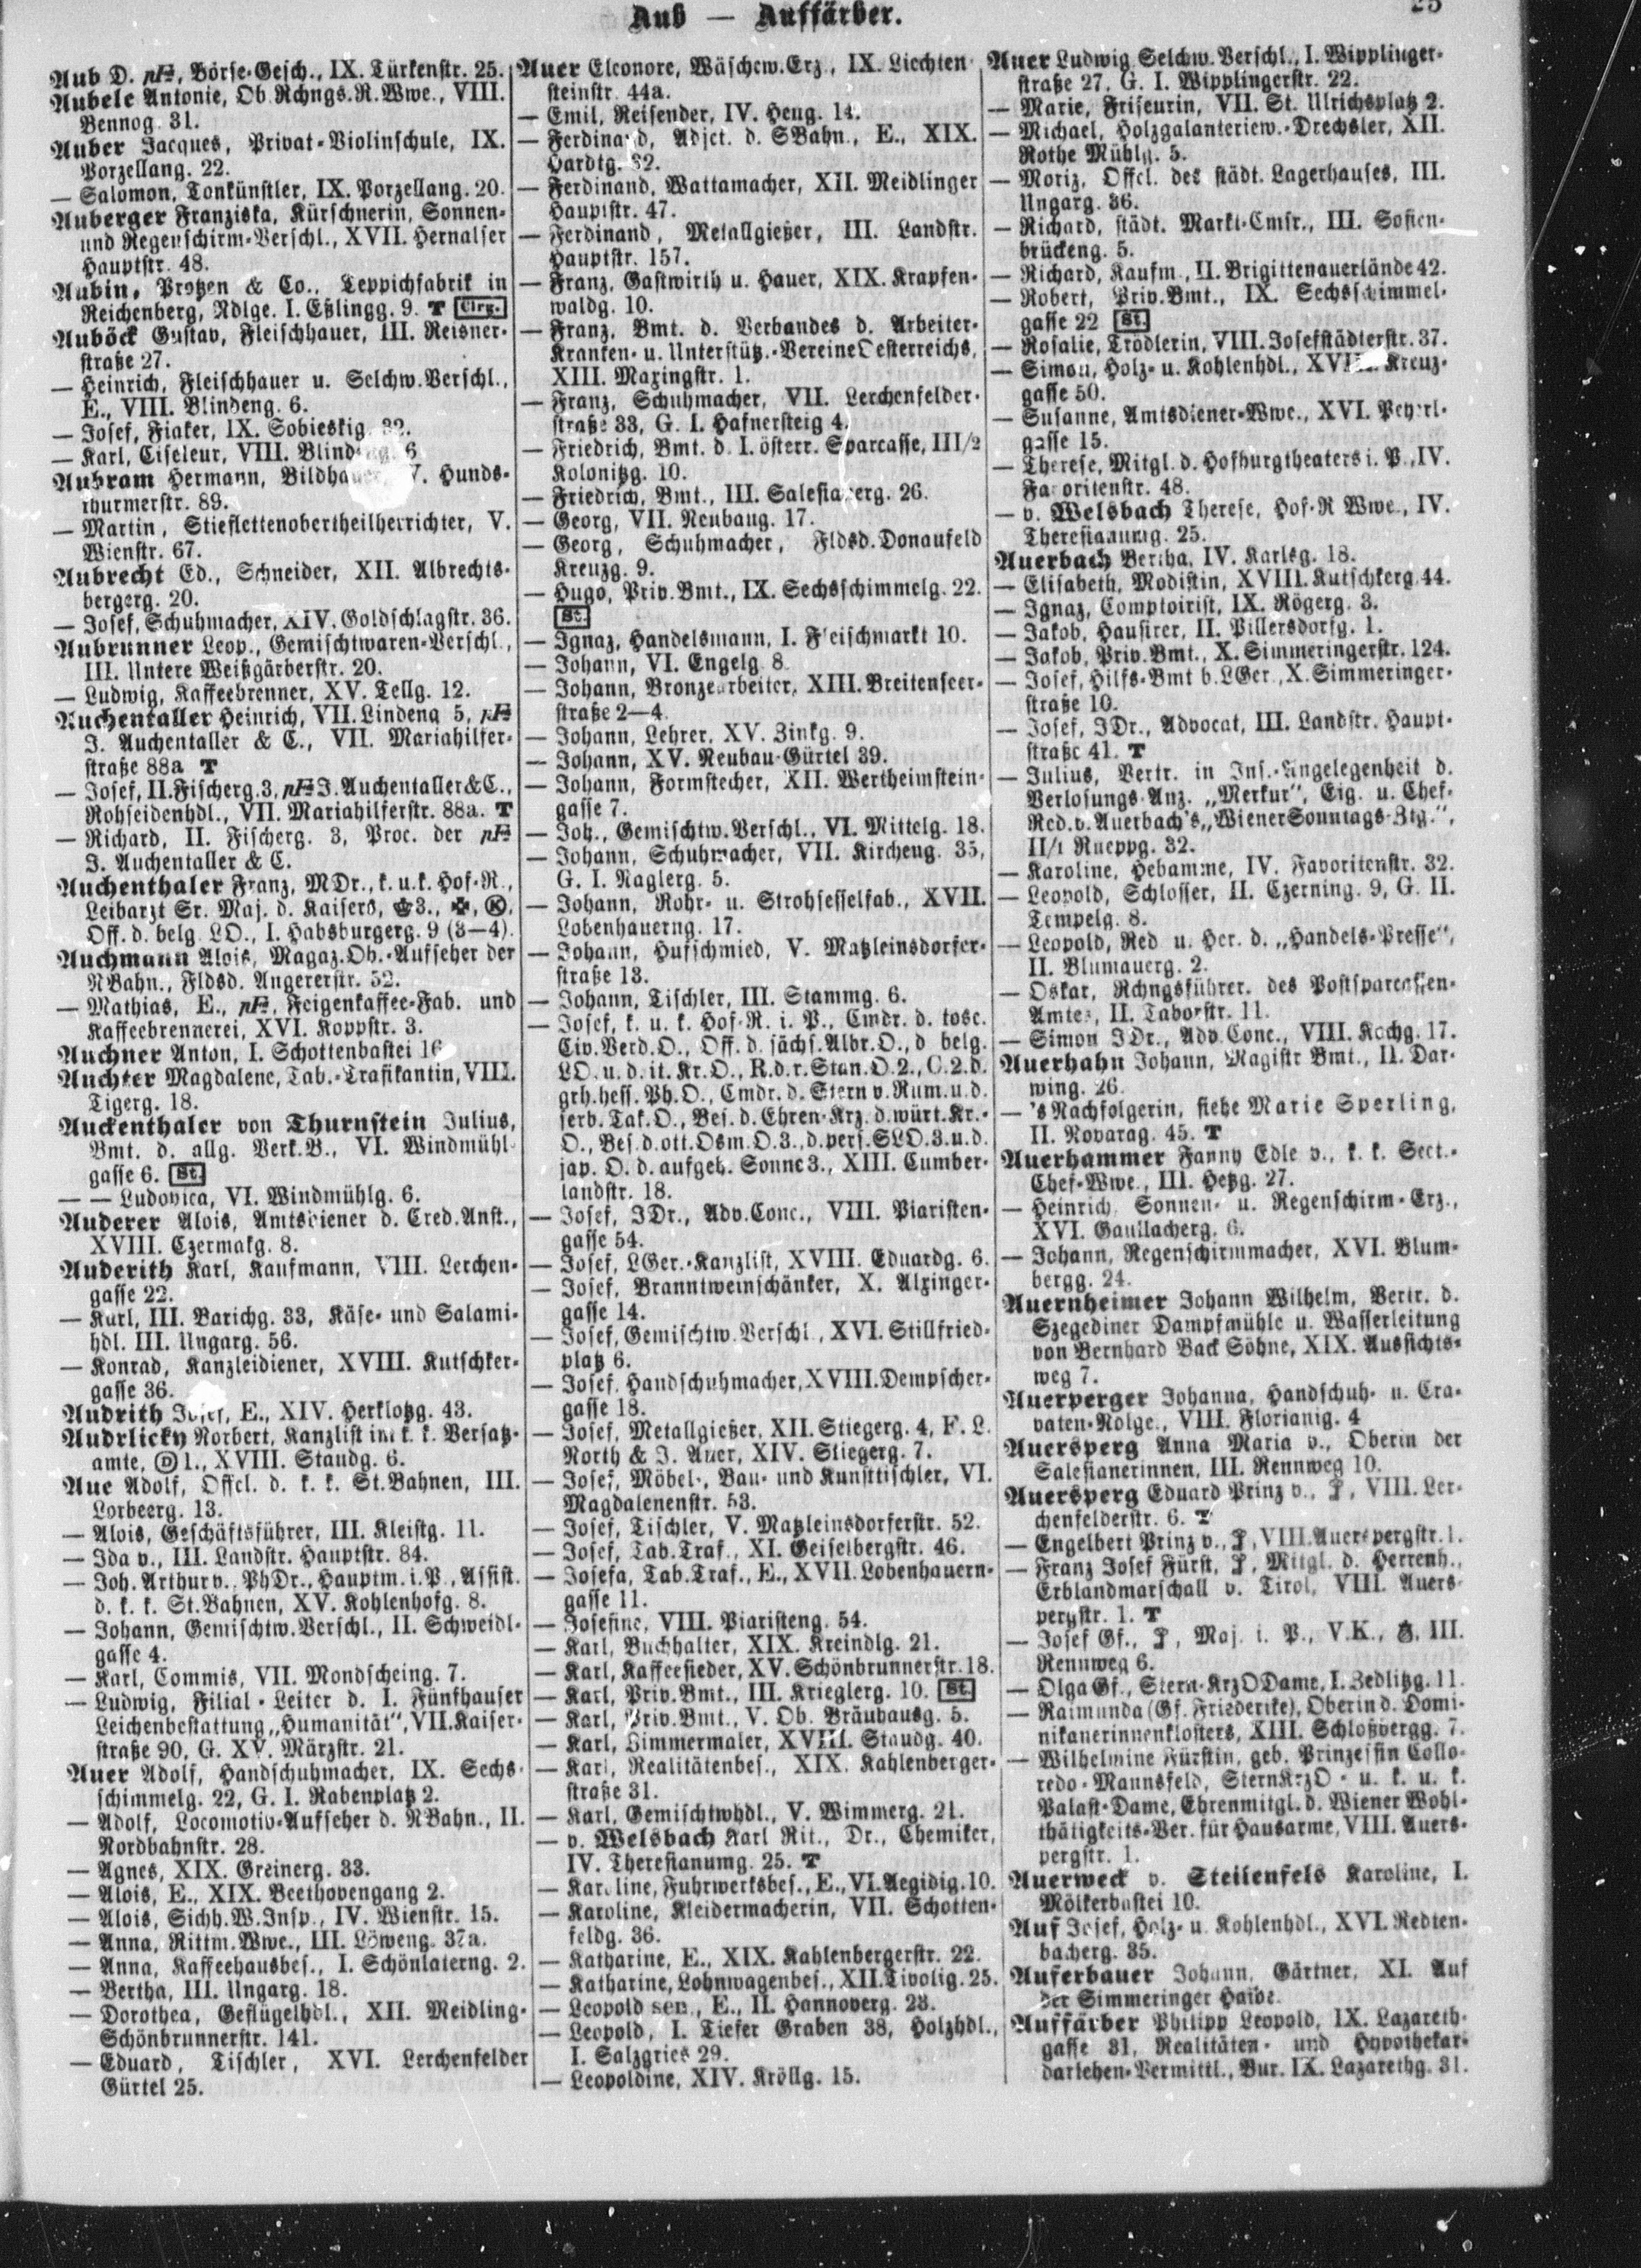 Aub — Auffärber.
25
Aub D. pF, Börse-Gesch., IX. Türkenstr. 25.
Aubele Antonie, Ob.Rchngs.R.Wwe., VIII.
Bennog. 31.
Auber Jacques, Privat-Violinschule, IX.
Porzellang. 22.
— Salomon, Tonkünstler, IX. Porzellang. 20.
Auberger Franziska, Kürschnerin, Sonnen-
und Regenschirm-Verschl., XVII. Hernalser
Hauptstr. 48.
Aubin, Protzen & Co., Teppichfabrik in
Reichenberg, Ndlge. I. Eßlingg. 9. T Clrg.
Auböck Gustav, Fleischhauer, III. Reisner-
straße 27.
— Heinrich, Fleischhauer u. Selchw.Verschl.,
E., VIII. Blindeng. 6.
— Josef, Fiaker, IX. Sobieskig. 32.
— Karl, Ciseleur, VIII. Blindeng. 6
Aubram Hermann, Bildhauer, V. Hunds-
thurmerstr. 89.
— Martin, Stieflettenobertheilherrichter, V.
Wienstr. 67.
Aubrecht Ed., Schneider, XII. Albrechts-
bergerg. 20.
— Josef, Schuhmacher, XIV. Goldschlagstr. 36.
Aubrunner Leop., Gemischtwaren-Verschl.,
III. Untere Weißgärberstr. 20.
— Ludwig, Kaffeebrenner, XV. Tellg. 12.
Auchentaller Heinrich, VII. Lindeng 5, pF
J. Auchentaller & C., VII. Mariahilfer-
straße 88a T
— Josef, II. Fischerg. 3, pF J. Auchentaller & C.,
Rohseidenhdl., VII. Mariahilferstr. 88a. T
— Richard, II. Fischerg. 3, Proc. der pF
J. Auchentaller & C.
Auchenthaler Franz, MDr., k. u. k. Hof-R.,
Leibarzt Sr. Maj. d. Kaisers, ♚3., ✠, Ⓚ,
Off. d. belg. LO., I. Habsburgerg. 9 (3—4).
Auchmann Alois, Magaz.Ob.-Aufseher der
NBahn., Fldsd. Angererstr. 52.
— Mathias, E., pF, Feigenkaffee-Fab. und
Kaffeebrennerei, XVI. Koppstr. 3.
Auchner Anton, I. Schottenbastei 16
Auchter Magdalene, Tab.-Trafikantin, VIII.
Tigerg. 18.
Auckenthaler von Thurnstein Julius,
Bmt. d. allg. Verk.B., VI. Windmühl-
gasse 6. St.
— — Ludovica, VI. Windmühlg. 6.
Auderer Alois, Amtsdiener d. Cred.Anst.,
XVIII. Czermakg. 8.
Auderith Karl, Kaufmann, VIII. Lerchen-
gasse 22.
— Karl, III. Barichg. 33, Käse- und Salami-
hdl. III. Ungarg. 56.
— Konrad, Kanzleidiener, XVIII. Kutschker-
gasse 36.
Audrith Josef, E., XIV. Herklotzg. 43.
Audrlicky Norbert, Kanzlist im k. k. Versatz-
amte, Ⓓ 1., XVIII. Staudg. 6.
Aue Adolf, Offcl. d. k. k. St.Bahnen, III.
Lorbeerg. 13.
— Alois, Geschäftsführer, III. Kleistg. 11.
— Ida v., III. Landstr. Hauptstr. 84.
— Joh. Arthur v., PhDr., Hauptm. i. P., Assist.
d. k. k. St.Bahnen, XV. Kohlenhofg. 8.
— Johann, Gemischtw.Verschl., II. Schweidl-
gasse 4.
— Karl, Commis, VII. Mondscheing. 7.
— Ludwig, Filial-Leiter d. I. Fünfhauser
Leichenbestattung „Humanität“, VII. Kaiser-
straße 90, G. XV. Märzstr. 21.
Auer Adolf, Handschuhmacher, IX. Sechs-
schimmelg. 22, G. I. Rabenplatz 2.
— Adolf, Locomotiv-Aufseher d. NBahn., II.
Nordbahnstr. 28.
— Agnes, XIX. Greinerg. 33.
— Alois, E., XIX. Beethovengang 2.
— Alois, Sichh.W.Insp., IV. Wienstr. 15.
— Anna, Rittm.Wwe., III. Löweng. 37a.
— Anna, Kaffeehausbes., I. Schönlaterng. 2.
— Bertha, III. Ungarg. 18.
— Dorothea, Geflügelhdl., XII. Meidling-
Schönbrunnerstr. 141.
— Eduard, Tischler, XVI. Lerchenfelder
Gürtel 25.
Auer Eleonore, Wäschew.Erz., IX. Liechten-
steinstr. 44a.
— Emil, Reisender, IV. Heug. 14.
— Ferdinand, Adjct. d. SBahn., E., XIX.
Hardtg. 32.
— Ferdinand, Wattamacher, XII. Meidlinger
Hauptstr. 47.
— Ferdinand, Metallgießer, III. Landstr.
Hauptstr. 157.
— Franz, Gastwirth u. Hauer, XIX. Krapfen-
waldg. 10.
— Franz, Bmt. d. Verbandes d. Arbeiter-
Kranken- u. Unterstütz.-Vereine Oesterreichs,
XIII. Maxingstr. 1.
— Franz, Schuhmacher, VII. Lerchenfelder-
straße 33, G. I. Hafnersteig 4.
— Friedrich, Bmt. d. I. österr. Sparcasse, III/2
Kolonitzg. 10.
— Friedrich, Bmt., III. Salesianerg. 26.
— Georg, VII. Neubaug. 17.
— Georg, Schuhmacher, Fldsd. Donaufeld
Kreuzg. 9.
— Hugo, Priv.Bmt., IX. Sechsschimmelg. 22.
St.
— Ignaz, Handelsmann, I. Fleischmarkt 10.
— Johann, VI. Engelg 8.
— Johann, Bronzearbeiter, XIII. Breitenseer-
straße 2—4.
— Johann, Lehrer, XV. Zinkg. 9.
— Johann, XV. Neubau-Gürtel 39.
— Johann, Formstecher, XII. Wertheimstein-
gasse 7.
— Joh., Gemischtw.Verschl., VI. Mittelg. 18.
— Johann, Schuhmacher, VII. Kircheng. 35,
G. I. Naglerg. 5.
— Johann, Rohr- u. Strohsesselfab., XVII.
Lobenhauerng. 17.
— Johann, Hufschmied, V. Matzleinsdorfer-
straße 13.
— Johann, Tischler, III. Stammg. 6.
— Josef, k. u. k. Hof-R. i. P., Cmdr. d. tosc.
Civ.Verd.O., Off. d. sächs. Albr.O., d belg.
LO. u. d. it. Kr.O., R. d. r. Stan.O.2., C.2.d.
grh.hess. Ph.O., Cmdr. d. Stern v. Rum. u. d.
serb. Tak.O., Bes. d. Ehren-Krz. d. würt. Kr.-
O., Bes. d. ott. Osm.O.3., d. pers. SLO.3. u. d.
jap. O. d. aufgeh. Sonne 3., XIII. Cumber-
landstr. 18.
— Josef, JDr., Adv.Conc., VIII. Piaristen-
gasse 54.
— Josef, LGer.-Kanzlist, XVIII. Eduardg. 6.
— Josef, Branntweinschänker, X. Alxinger-
gasse 14.
— Josef, Gemischtw.Verschl., XVI. Stillfried-
platz 6.
— Josef, Handschuhmacher, XVIII. Dempscher-
gasse 18.
— Josef, Metallgießer, XII. Stiegerg. 4, F. L.
North & J. Auer, XIV. Stiegerg. 7.
— Josef, Möbel-, Bau- und Kunsttischler, VI.
Magdalenenstr. 53.
— Josef, Tischler, V. Matzleinsdorferstr. 52.
— Josef, Tab.Traf., XI. Geiselbergstr. 46.
— Josefa, Tab.Traf., E., XVII. Lobenhauern-
gasse 11.
— Josefine, VIII. Piaristeng. 54.
— Karl, Buchhalter, XIX. Kreindlg. 21.
— Karl, Kaffeesieder, XV. Schönbrunnerstr. 18.
— Karl, Priv.Bmt., III. Krieglerg. 10. St.
— Karl, Priv.Bmt., V. Ob. Bräuhausg. 5.
— Karl, Zimmermaler, XVIII. Staudg. 40.
— Karl, Realitätenbes., XIX. Kahlenberger-
straße 31.
— Karl, Gemischtwhdl., V. Wimmerg. 21.
— v. Welsbach Karl Rit., Dr., Chemiker,
IV. Theresianumg. 25. T
— Karoline, Fuhrwerksbes., E., VI. Aegidig. 10.
— Karoline, Kleidermacherin, VII. Schotten-
feldg. 36.
— Katharine, E., XIX. Kahlenbergerstr. 22.
— Katharine, Lohnwagenbes., XII. Tivolig. 25.
— Leopold sen., E., II. Hannoverg. 23.
— Leopold, I. Tiefer Graben 38, Holzhdl.,
I. Salzgries 29.
— Leopoldine, XIV. Kröllg. 15.
Auer Ludwig Selchw.Verschl., I. Wipplinger-
straße 27. G. I. Wipplingerstr. 22.
— Marie, Friseurin, VII. St. Ulrichsplatz 2.
— Michael, Holzgalanteriew.-Drechsler, XII.
Rothe Mühlg. 5.
— Moriz, Offcl. des städt. Lagerhauses, III.
Ungarg. 36.
— Richard, städt. Markt-Cmsr., III. Sofien-
brückeng. 5.
— Richard, Kaufm., II. Brigittenauerlände 42.
— Robert, Priv.Bmt., IX. Sechsschimmel-
gasse 22 St.
— Rosalie, Trödlerin, VIII. Josefstädterstr. 37.
— Simon, Holz- u. Kohlenhdl., Kreuz-
gasse 50.
— Susanne, Amtsdiener-Wwe., XVI. Peyerl-
gasse 15.
— Therese, Mitgl. d. Hofburgtheaters i. P., IV.
Favoritenstr. 48.
— v. Welsbach Therese, Hof-R Wwe., IV.
Theresianumg. 25.
Auerbach Bertha, IV. Karlsg. 18.
— Elisabeth, Modistin, XVIII. Kutschkerg. 44.
— Ignaz, Comptoirist, IX. Rögerg. 3.
— Jakob, Hausirer, II. Pillersdorfg. 1.
— Jakob, Priv.Bmt., X. Simmeringerstr. 124.
— Josef, Hilfs-Bmt b. LGer., X. Simmeringer-
straße 10.
— Josef, JDr., Advocat, III. Landstr. Haupt-
straße 41. T
— Julius, Vertr. in Ins.-Angelegenheit d.
Verlosungs-Anz. „Merkur“, Eig. u. Chef-
Red. v. Auerbach's „Wiener Sonntags-Ztg.“,
II/1 Rueppg. 32.
— Karoline, Hebamme, IV. Favoritenstr. 32.
— Leopold, Schlosser, II. Czerning. 9, G. II.
Tempelg. 8.
— Leopold, Red u. Her. d. „Handels-Presse“,
II. Blumauerg. 2.
— Oskar, Rchngsführer. des Postsparcassen-
Amtes, II. Taborstr. 11.
— Simon JDr., Adv.Conc., VIII. Kochg. 17.
Auerhahn Johann, Magistr Bmt., II. Dar-
wing. 26.
— 's Nachfolgerin, siehe Marie Sperling,
II. Novarag. 45. T
Auerhammer Fanny Edle v., k. k. Sect.-
Chef-Wwe., III. Hetzg. 27.
— Heinrich Sonnen- u. Regenschirm-Erz.,
XVI. Gaullacherg. 6.
— Johann, Regenschirmmacher, XVI. Blum-
bergg. 24.
Auernheimer Johann Wilhelm, Vertr. d.
Szegediner Dampfmühle u. Wasserleitung
von Bernhard Back Söhne, XIX. Aussichts-
weg 7.
Auerperger Johanna, Handschuh- u. Cra-
vaten-Ndlge., VIII. Florianig. 4
Auersperg Anna Maria v., Oberin der
Salesianerinnen, III. Rennweg 10.
Auersperg Eduard Prinz v., VIII. Ler-
chenfelderstr. 6. T
— Engelbert Prinz v., VIII. Auerspergstr. 1.
— Franz Josef Fürst, Mitgl. d. Herrenh.,
Erblandmarschall v. Tirol, VIII. Auers-
pergstr. 1. T
— Josef Gf., Maj. i. P., V.K., III.
Rennweg 6.
— Olga Gf., Stern-KrzODame, I. Zedlitzg. 11.
— Raimunda (Gf. Friederike), Oberin d. Domi-
nikanerinnenklosters, XIII. Schloßbergg. 7.
— Wilhelmine Fürstin, geb. Prinzessin Collo-
redo-Mannsfeld, SternKrzO- u. k. u. k.
Palast-Dame, Ehrenmitgl. d. Wiener Wohl-
thätigkeits-Ver. für Hausarme, VIII. Auers-
pergstr. 1.
Auerweck v. Steilenfels Karoline, I.
Mölkerbastei 10.
Auf Josef, Holz- u. Kohlenhdl., XVI. Redten-
bacherg. 35.
Auferbauer Johann, Gärtner, XI. Auf
der Simmeringer Haide.
Auffärber Philipp Leopold, IX. Lazareth-
gasse 31, Realitäten- und Hypothekar-
darlehen-Vermittl., Bur. IX. Lazarethg. 31.